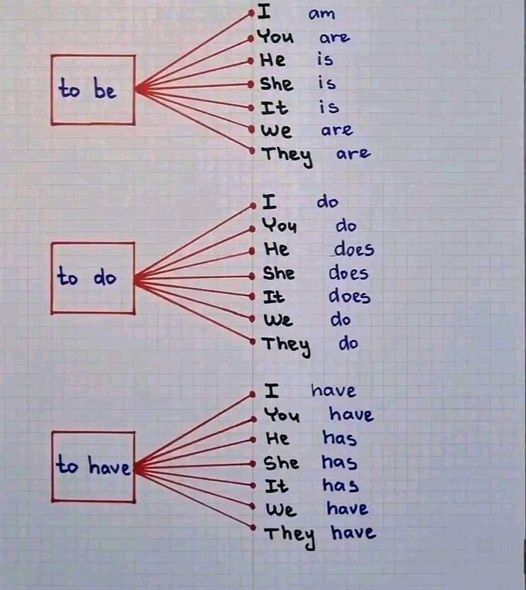 to be
I am
You are
He is
She is
It is
We are
They are
to do
I do
You do
He does
She does
It does
We do
They do
to have
I have
You have
He has
She has
It has
We have
They have